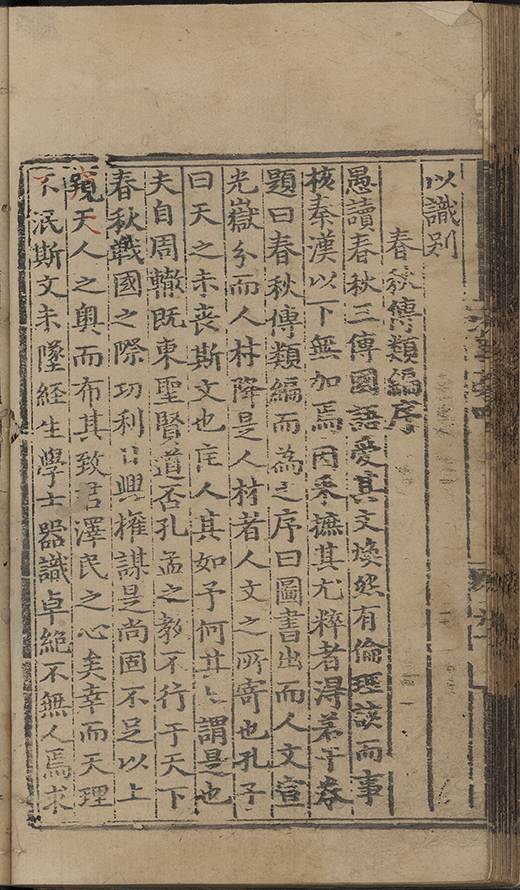 以識别
春秋傳類編序
愚讀春秋三傳國語愛其文煥然有倫理該而事
核秦漢以下無加焉因采摭其尤粹者得若干卷
題曰春秋傳類編而為之序曰圖書出而人文宣
光嶽分而人材降是人材者人文之所寄也孔子
曰天之未丧斯文也匡人其如予何其謂是也
夫自周轍既東聖賢道否孔孟之教不行于天下
春秋戰國之際功利日興權謀是尚固不足以上
窺天人之奥而布其致君澤民之心矣幸而天理
不泯斯文未墜経生學士器識卓絶不無人焉求